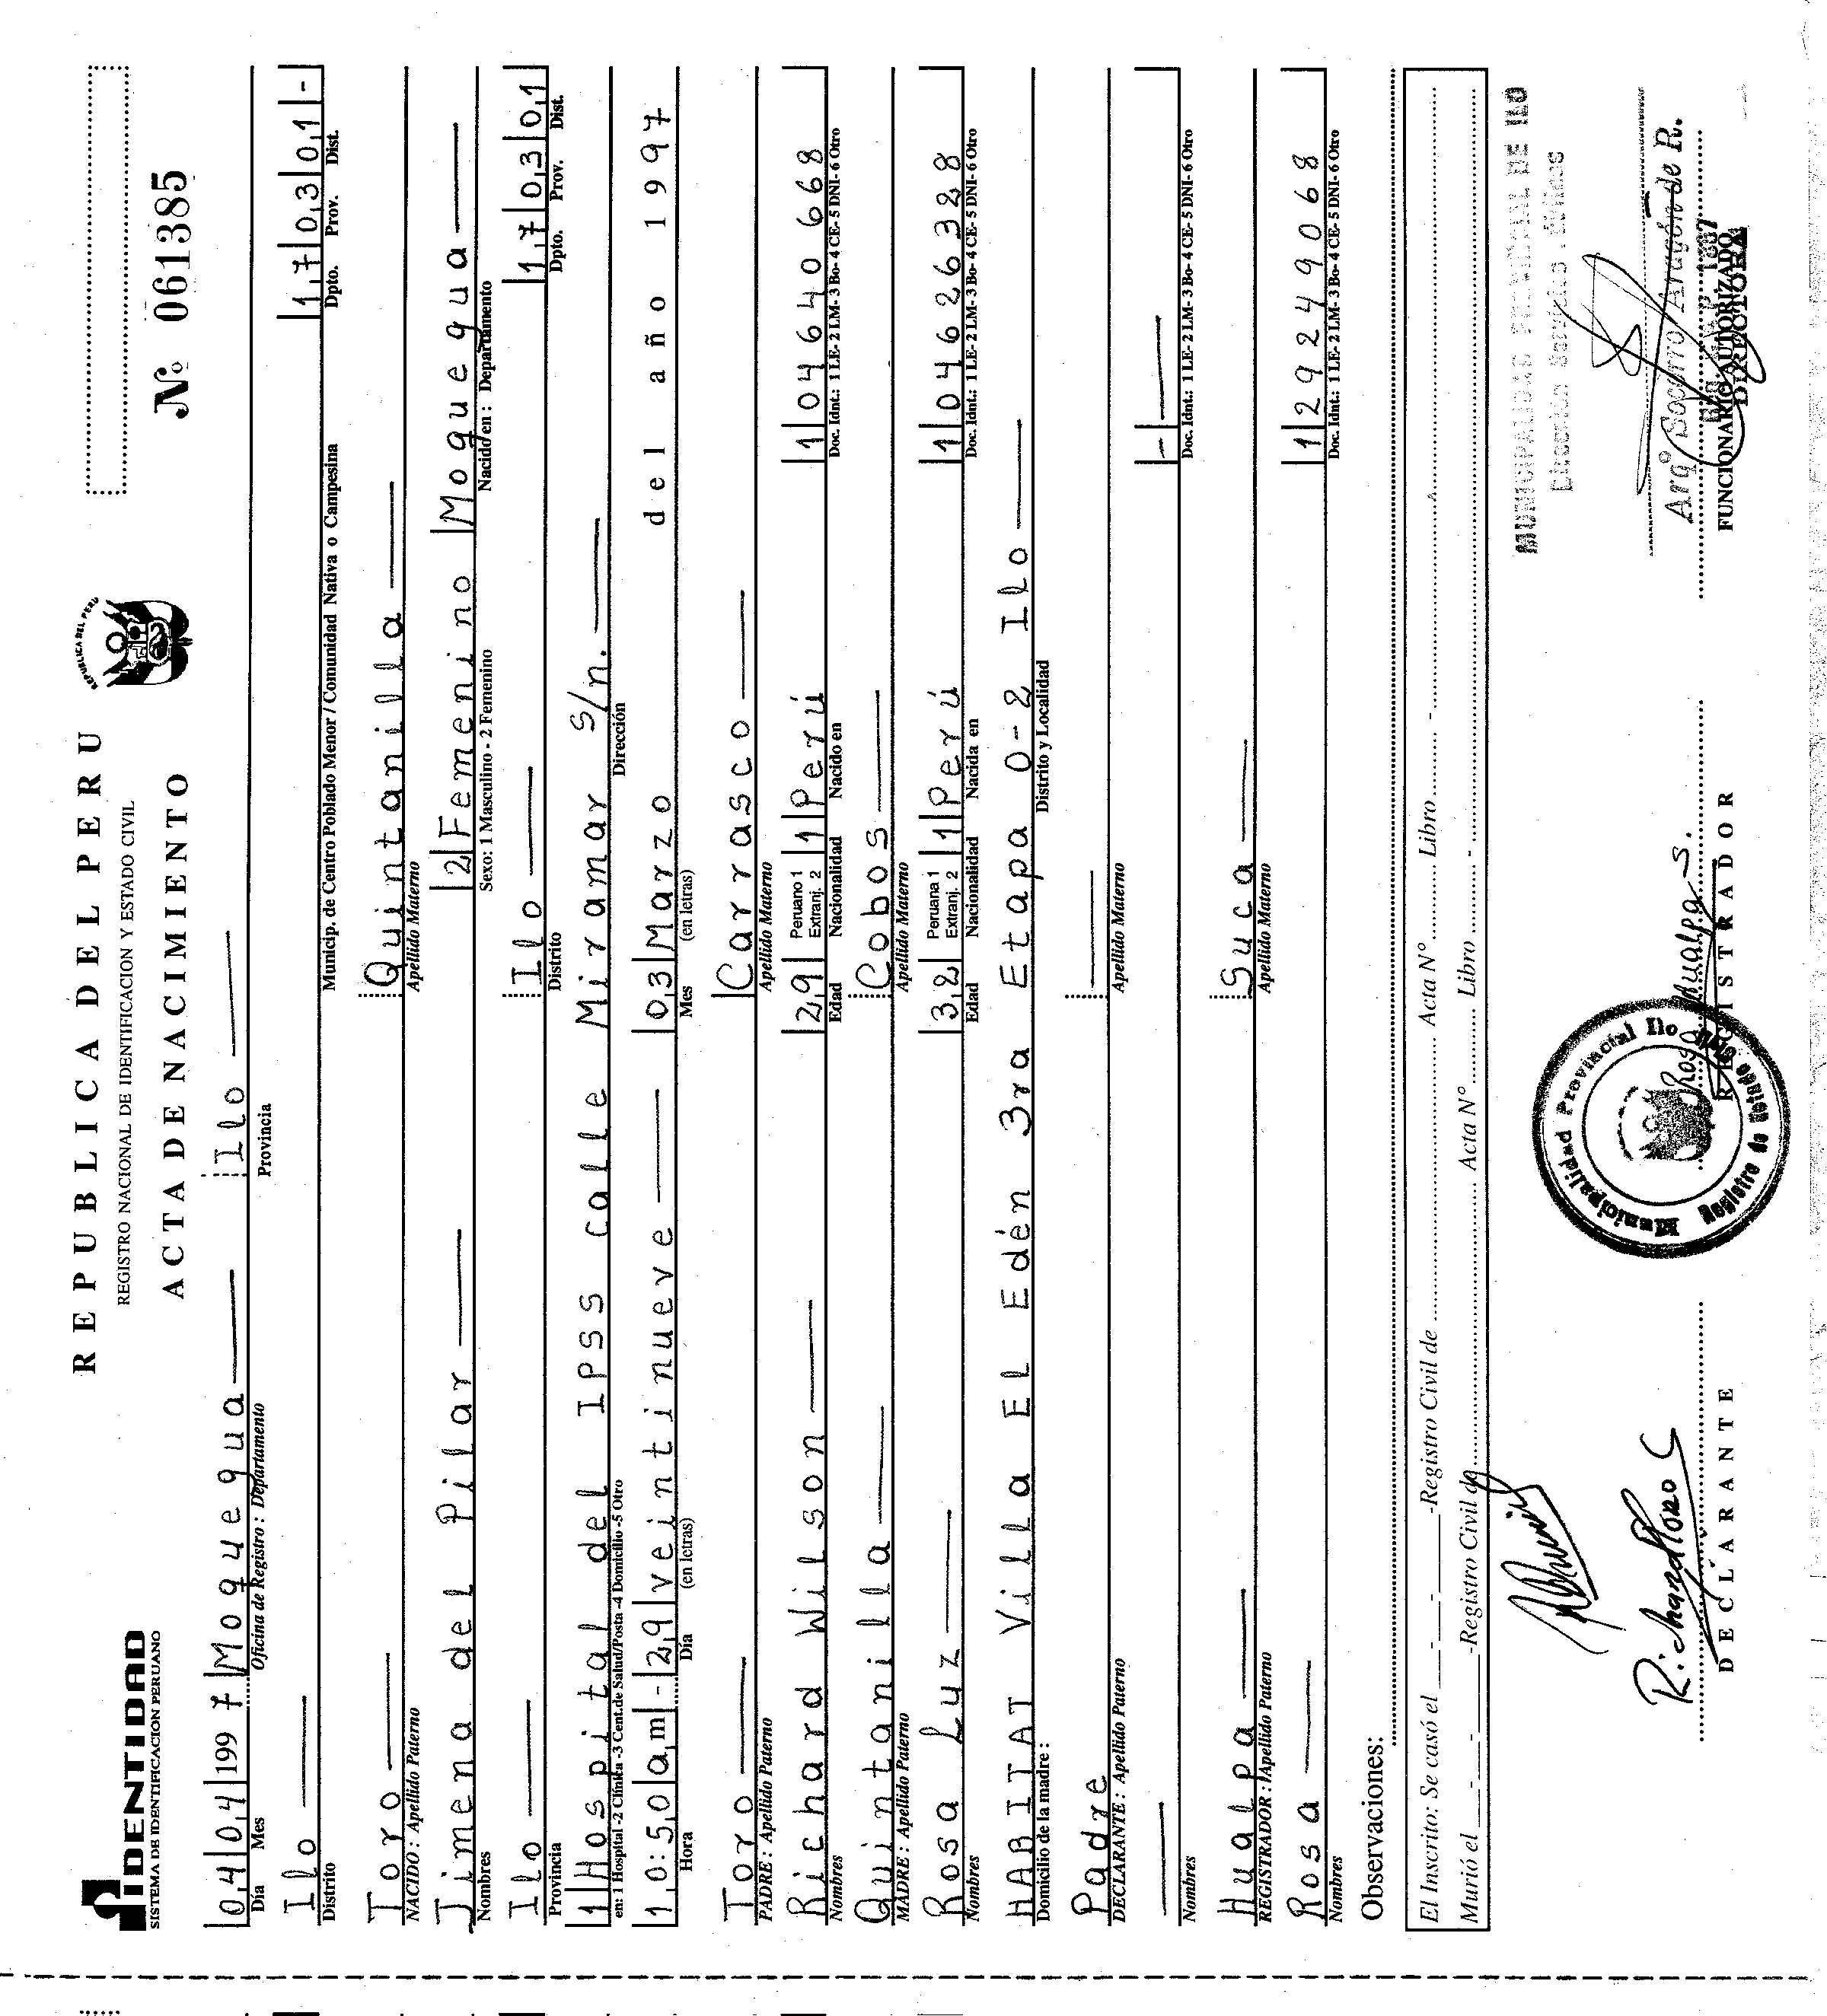 IDENTIDAD
SISTEMA DE IDENTIFICACION PERUANO
REPUBLICA DEL PERU
REPUBLICA DEL PERU
REGISTRO NACIONAL DE IDENTIFICACION Y ESTADO CIVIL
ACTA DE NACIMIENTO
Nº 061385
0,4|0,4|199 7|Moquegua — Ilo —
Día Mes Oficina de Registro : Departamento Provincia
Ilo — 1,7|0,3|0,1|-
Distrito Municip. de Centro Poblado Menor / Comunidad Nativa o Campesina Dpto. Prov. Dist.
Toro — Quintanilla —
NACIDO : Apellido Paterno Apellido Materno
Jimena del Pilar — 2|Femenino|Moquegua —
Nombres Sexo: 1 Masculino - 2 Femenino Nacido en : Departamento
Ilo — Ilo — 1,7|0,3|0,1
Provincia Distrito Dpto. Prov. Dist.
1|Hospital del IPSS calle Miramar S/n. —
en: 1 Hospital -2 Clínica -3 Cent.de Salud/Posta -4 Domicilio -5 Otro Dirección
1,0:5,0|a,m|-|2,9|veintinueve — 0,3|Marzo del año 1997
Hora Día (en letras) Mes (en letras)
Toro — Carrasco —
PADRE : Apellido Paterno Apellido Materno
Richard Wilson — 2,9| Peruano 1 Extranj. 2 |1|Perú 1|04640668
Nombres Edad Nacionalidad Nacido en Doc. Idnt.: 1 LE- 2 LM- 3 Bo- 4 CE- 5 DNI- 6 Otro
Quintanilla — Cobos —
MADRE : Apellido Paterno Apellido Materno
Rosa Luz — 3,2| Peruana 1 Extranj. 2 |1|Perú 1|04626328
Nombres Edad Nacionalidad Nacida en Doc. Idnt.: 1 LE- 2 LM- 3 Bo- 4 CE- 5 DNI- 6 Otro
HABITAT Villa El Edén 3ra Etapa O-2 Ilo —
Domicilio de la madre : Distrito y Localidad
Padre —
DECLARANTE : Apellido Paterno Apellido Materno
— -|—
Nombres Doc. Idnt.: 1 LE- 2 LM- 3 Bo- 4 CE- 5 DNI- 6 Otro
Hualpa — Suca —
REGISTRADOR : Apellido Paterno Apellido Materno
Rosa — 1|29249068
Nombres Doc. Idnt.: 1 LE- 2 LM- 3 Bo- 4 CE- 5 DNI- 6 Otro
Observaciones:
El Inscrito: Se casó el __-__-__-Registro Civil de ........ Acta Nº ........ Libro ........ - ........
Murió el __-__-__-Registro Civil de ........ Acta Nº ........ Libro ........ - ........
MUNICIPALIDAD PROVINCIAL DE ILO
Dirección Servicios
Richard Toro C
Municipalidad Provincial Ilo
Registro de Estado Civil
Rosa Hualpa S.
Arqº Socorro Aragón de R.
DECLARANTE REGISTRADOR FUNCIONARIO AUTORIZADO
DIRECTORA